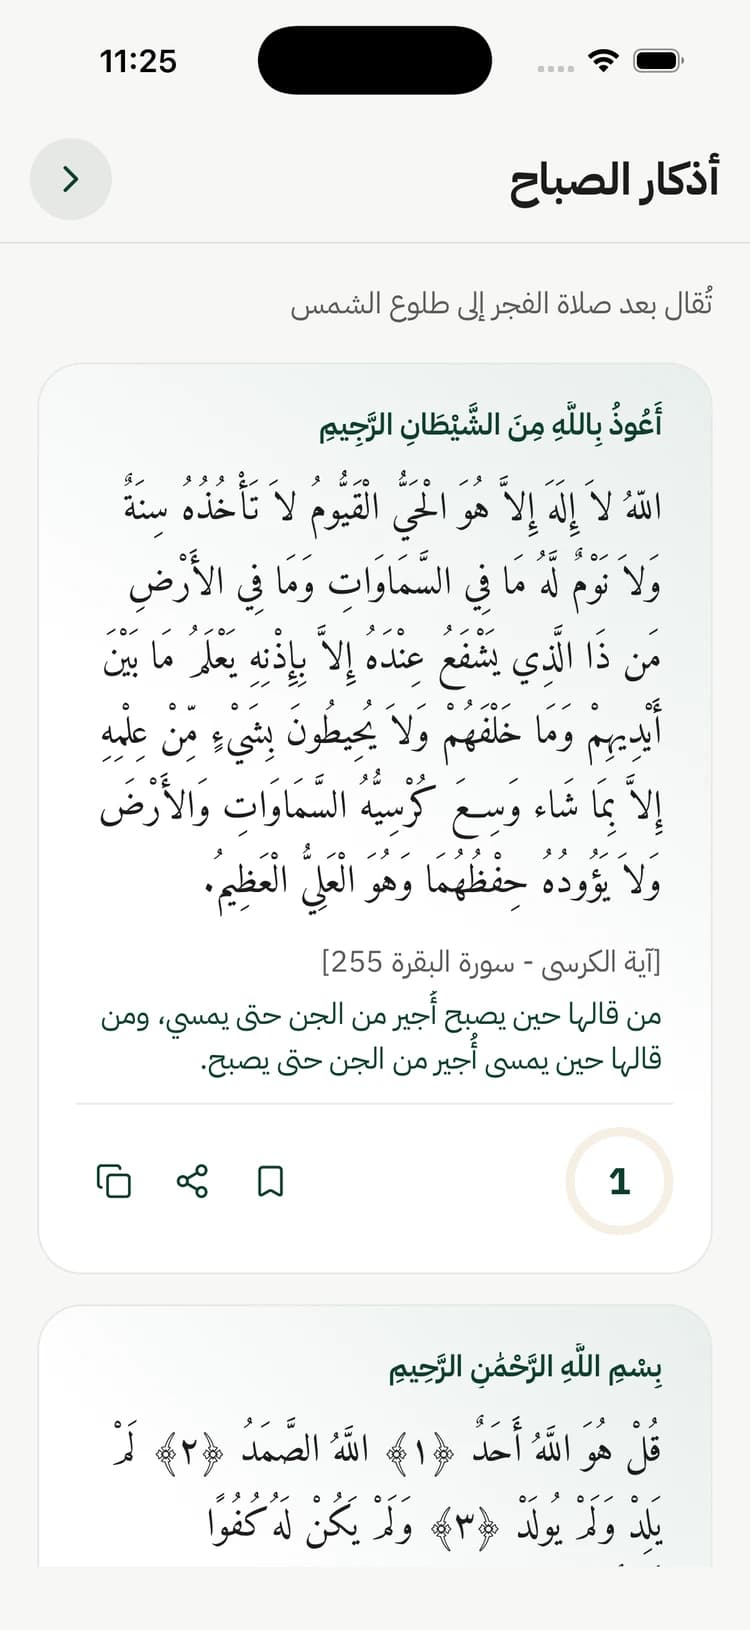 11:25
أذكار الصباح
تُقال بعد صلاة الفجر إلى طلوع الشمس
أَعُوذُ بِاللَّهِ مِنَ الشَّيْطَانِ الرَّجِيمِ
اللّهُ لاَ إِلَهَ إِلاَّ هُوَ الْحَيُّ الْقَيُّومُ لاَ تَأْخُذُهُ سِنَةٌ
وَلاَ نَوْمٌ لَّهُ مَا فِي السَّمَاوَاتِ وَمَا فِي الأَرْضِ
مَن ذَا الَّذِي يَشْفَعُ عِنْدَهُ إِلاَّ بِإِذْنِهِ يَعْلَمُ مَا بَيْنَ
أَيْدِيهِمْ وَمَا خَلْفَهُمْ وَلاَ يُحِيطُونَ بِشَيْءٍ مِّنْ عِلْمِهِ
إِلاَّ بِمَا شَاء وَسِعَ كُرْسِيُّهُ السَّمَاوَاتِ وَالأَرْضَ
وَلاَ يَؤُودُهُ حِفْظُهُمَا وَهُوَ الْعَلِيُّ الْعَظِيمُ.
[آية الكرسى - سورة البقرة 255]
من قالها حين يصبح أُجير من الجن حتى يمسي، ومن
قالها حين يمسى أُجير من الجن حتى يصبح.
1
بِسْمِ اللَّهِ الرَّحْمَٰنِ الرَّحِيمِ
قُلْ هُوَ اللَّهُ أَحَدٌ ﴿١﴾ اللَّهُ الصَّمَدُ ﴿٢﴾ لَمْ
يَلِدْ وَلَمْ يُولَدْ ﴿٣﴾ وَلَمْ يَكُنْ لَهُ كُفُوًا